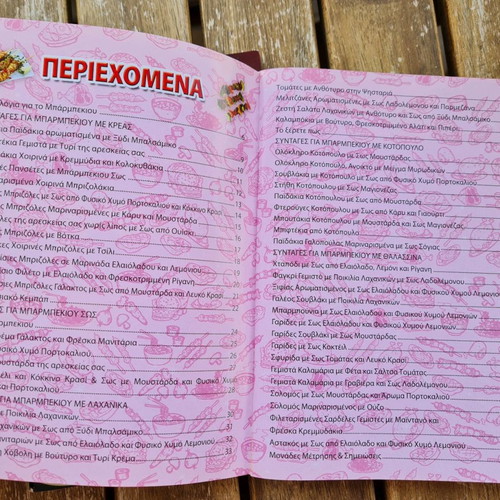 ΠΕΡΙΕΧΟΜΕΝΑ
λόγια για το Μπαρμπεκιου
ΓΕΣ ΓΙΑ ΜΠΑΡΜΠΕΚΙΟΥ ΜΕ ΚΡΕΑΣ
Παιδάκια αρωματισμένα με Ξύδι Μπαλσάμικο 6
Γεμιστά με Τυρί της αρεσκείας σας
Χοιρινά με Κρεμμύδια και Κολοκυθάκια
Πανσέτες με Μπαρμπεκιου Σως
Χοιρινά Μπριζολάκια
Μπριζόλες με Σως από Φυσικό Χυμό Πορτοκαλιού και Κόκκινο Κρασί
Μπριζόλες Μαριναρισμένες με Κάρυ και Μουστάρδα
της αρεσκείας σας χωρίς λίπος με Σως από Ουίσκι
Μπριζόλες με Βότκα
Χοιρινές Μπριζόλες με Τσίλι
Μπριζόλες σε Μαρινάδα Ελαιόλαδου και Λεμονιού
Φιλέτο με Ελαιόλαδο και Φρεσκοτριμμένη Ρίγανη
Μπριζόλες Γάλακτος με Σως από Μουστάρδα και Λευκό Κρασί
Κεμπάπ 22
ΓΙΑ ΜΠΑΡΜΠΕΚΙΟΥ ΣΩΣ
24
Γάλακτος και Φρέσκια Μαϊντανό 25
Χυμό Πορτοκαλιού 26
της αρεσκείας σας 28
και Κόκκινο Κρασί & Σως με Μουστάρδα και Φυσικό Χυμό
Πορτοκαλιού 29
ΓΙΑ ΜΠΑΡΜΠΕΚΙΟΥ ΜΕ ΛΑΧΑΝΙΚΑ
Ποικιλία Λαχανικών 30
με Σως από Ξύδι Μπαλσάμικο 31
με Σως από Ελαιόλαδο και Φυσικό Χυμό Λεμονιού 32
Χόβολη με Βούτυρο και Τυρί Κρέμα 33
Τομάτες με Ανθότυρο στην Ψησταριά
Μελιτζάνες Αρωματισμένες με Σως Λαδολέμονου και Παρμεζάνα
Ζεστή Σαλάτα Λαχανικών με Ανθότυρο και Σως από Ξύδι Μπαλσάμικο
Καλαμπόκια με Βούτυρο, Φρεσκοτριμμένο Αλάτι και Πιπέρι
Το ξέρετε πως
ΣΥΝΤΑΓΕΣ ΓΙΑ ΜΠΑΡΜΠΕΚΙΟΥ ΜΕ ΚΟΤΟΠΟΥΛΟ
Ολόκληρο Κοτόπουλο με Σως Μουστάρδας
Ολόκληρο Κοτόπουλο, Άνοικτο με Μείγμα Μυρωδικών
Σουβλάκια με Σως Κοτόπουλο από Φυσικό Χυμό Πορτοκαλιού
Στήθη Κοτόπουλου με Σως Μαγιονέζας
Παϊδάκια Κοτόπουλου με Σως από Μουστάρδα
Φτερούγες Κοτόπουλου με Σως από Κάρυ και Γιαούρτι
Μπουτάκια Κοτόπουλου με Μουστάρδα και Σως Μαγιονέζας
Μπιφτέκια από Κοτόπουλο
Παϊδάκια Γαλοπούλας Μαριναρισμένα με Σως Σόγιας
ΣΥΝΤΑΓΕΣ ΓΙΑ ΜΠΑΡΜΠΕΚΙΟΥ ΜΕ ΘΑΛΑΣΣΙΝΑ
Χταπόδι με Σως από Ελαιόλαδο, Λεμόνι και Ρίγανη
Φαγκρί Γεμιστό με Ποικιλία Λαχανικών με Σως Λαδολέμονο
Ξιφίας Αρωματισμένος με Ελαιόλαδο και Φυσικό Χυμό Λεμονιού
Γαλέος Σουβλάκι με Ποικιλία Λαχανικών
Μπαρμπούνια με Σως από Ελαιόλαδο
Γαρίδες με Σως από Ελαιόλαδο και Φυσικό Χυμό Λεμονιού
Γαρίδες Σουβλάκι με Σως Μουστάρδας
Γαρίδες με Σως Κοκτέιλ
Σφυρίδα με Σως Τομάτας και Λευκό Κρασί
Γεμιστά Καλαμάρια με Φέτα και Σάλτσα Τομάτας
Γεμιστά Καλαμάρια με Γραβιέρα και Σως Λαδολέμονου
Σολομός με Σως Μουστάρδας και Άρωμα Πορτοκαλιού
Σολομός Μαριναρισμένος με Ούζο
Φιλεταρισμένες Σαρδέλες Γεμιστές με Μαϊντανό και
Φρέσκα Κρεμμυδάκια
Αστακός με Σως από Ελαιόλαδο και Φυσικό Χυμό Λεμονιού
Μονάδες Μέτρησης & Σημειώσεις